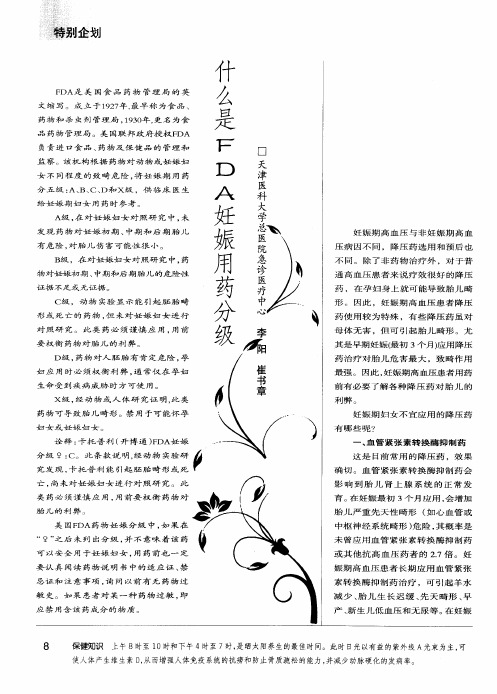 特别企划
什么是FDA妊娠用药分级
□天津医科大学总医院急诊医疗中心 李阳 崔书章
FDA是美国食品药物管理局的英
文缩写。成立于1927年,最早称为食品、
药物和杀虫剂管理局,1930年,更名为食
品药物管理局。美国联邦政府授权FDA
负责进口食品、药物及保健品的管理和
监察。该机构根据药物对动物或妊娠妇
女不同程度的致畸危险,将妊娠期用药
分五级:A、B、C、D和X级，供临床医生
给妊娠期妇女用药时参考。
A级,在对妊娠妇女对照研究中,未
发现药物对妊娠初期、中期和后期胎儿
有危险,对胎儿伤害可能性很小。
B级，在对妊娠妇女对照研究中,药
物对妊娠初期、中期和后期胎儿的危险性
证据不足或无证据。
C级，动物实验显示能引起胚胎畸
形或死亡的药物,但未对妊娠妇女进行
对照研究。此类药必须谨慎应用,用前
要权衡药物对胎儿的利弊。
D级,药物对人胚胎有肯定危险,孕
妇应用时必须权衡利弊,通常仅在孕妇
生命受到疾病威胁时方可使用。
X级,经动物或人体研究证明,此类
药物可导致胎儿畸形。禁用于可能怀孕
妇女或妊娠妇女。
诠释:卡托普利(开博通)FDA妊娠
分级♀:C。此条款说明,经动物实验研
究发现,卡托普利能引起胚胎畸形或死
亡,尚未对妊娠妇女进行对照研究。此
类药必须谨慎应用,用前要权衡药物对
胎儿的利弊。
美国FDA药物妊娠分级中,如果在
“♀”之后未列出分级,并不意味着该药
可以安全用于妊娠妇女,用药前也一定
要认真阅读药物说明书中的适应证、禁
忌证和注意事项,询问以前有无药物过
敏史。如果患者对某一种药物过敏,即
应禁用含该药成分的物质。
妊娠期高血压与非妊娠期高血
压病因不同，降压药选用和预后也
不同。除了非药物治疗外，对于普
通高血压患者来说疗效很好的降压
药，在孕妇身上就可能导致胎儿畸
形。因此，妊娠期高血压患者降压
药使用较为特殊，有些降压药虽对
母体无害，但可引起胎儿畸形。尤
其是早期妊娠(最初3个月)应用降压
药治疗对胎儿危害最大，致畸作用
最强。因此,妊娠期高血压患者用药
前有必要了解各种降压药对胎儿的
利弊。
妊娠期妇女不宜应用的降压药
有哪些呢?
一、血管紧张素转换酶抑制药
这是目前常用的降压药，效果
确切。血管紧张素转换酶抑制药会
影响到胎儿肾上腺系统的正常发
育。在妊娠最初3个月应用,会增加
胎儿严重先天性畸形（如心血管或
中枢神经系统畸形)危险,其概率是
未曾应用血管紧张素转换酶抑制药
或其他抗高血压药者的2.7倍。妊
娠期高血压患者长期应用血管紧张
素转换酶抑制药治疗，可引起羊水
减少、胎儿生长迟缓、先天畸形、早
产、新生儿低血压和无尿等。在妊娠
8 保健知识 上午8时至10时和下午4时至7时,是晒太阳养生的最佳时间。此时日光以有益的紫外线A光束为主,可
使人体产生维生素D,从而增强人体免疫系统的抗痨和防止骨质疏松的能力,并减少动脉硬化的发病率。